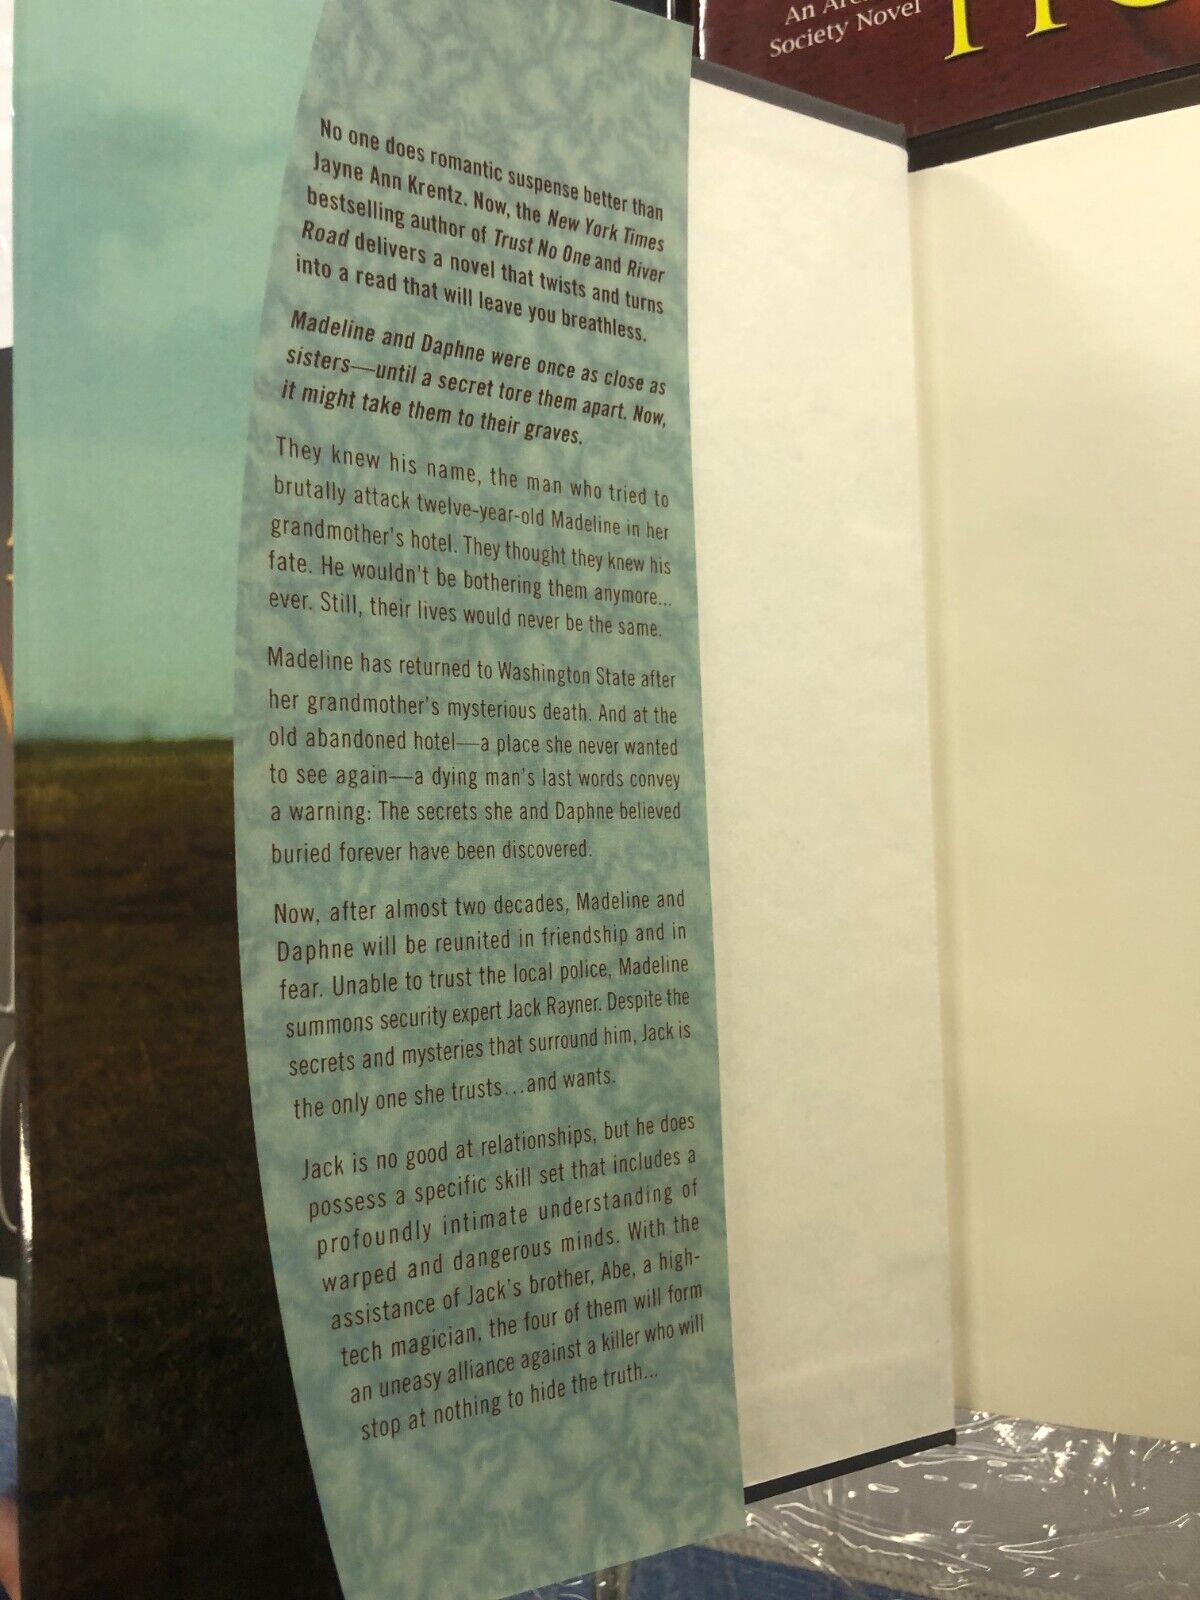 An
Society Novel
No one does romantic suspense better than
Jayne Ann Krentz. Now, the New York Times
bestselling author of Trust No One and River
Road delivers a novel that twists and turns
into a read that will leave you breathless.
Madeline and Daphne were once as close as
sisters—until a secret tore them apart. Now,
it might take them to their graves.
They knew his name, the man who tried to
brutally attack twelve-year-old Madeline in her
grandmother's hotel. They thought they knew his
fate. He wouldn't be bothering them anymore...
ever. Still, their lives would never be the same.
Madeline has returned to Washington State after
her grandmother's mysterious death. And at the
old abandoned hotel—a place she never wanted
to see again—a dying man's last words convey
a warning: The secrets she and Daphne believed
buried forever have been discovered.
Now, after almost two decades, Madeline and
Daphne will be reunited in friendship and in
fear. Unable to trust the local police, Madeline
summons security expert Jack Rayner. Despite the
secrets and mysteries that surround him, Jack is
the only one she trusts...and wants.
Jack is no good at relationships, but he does
possess a specific skill set that includes a
profoundly intimate understanding of
warped and dangerous minds. With the
assistance of Jack's brother, Abe, a high-
tech magician, the four of them will form
an uneasy alliance against a killer who will
stop at nothing to hide the truth...